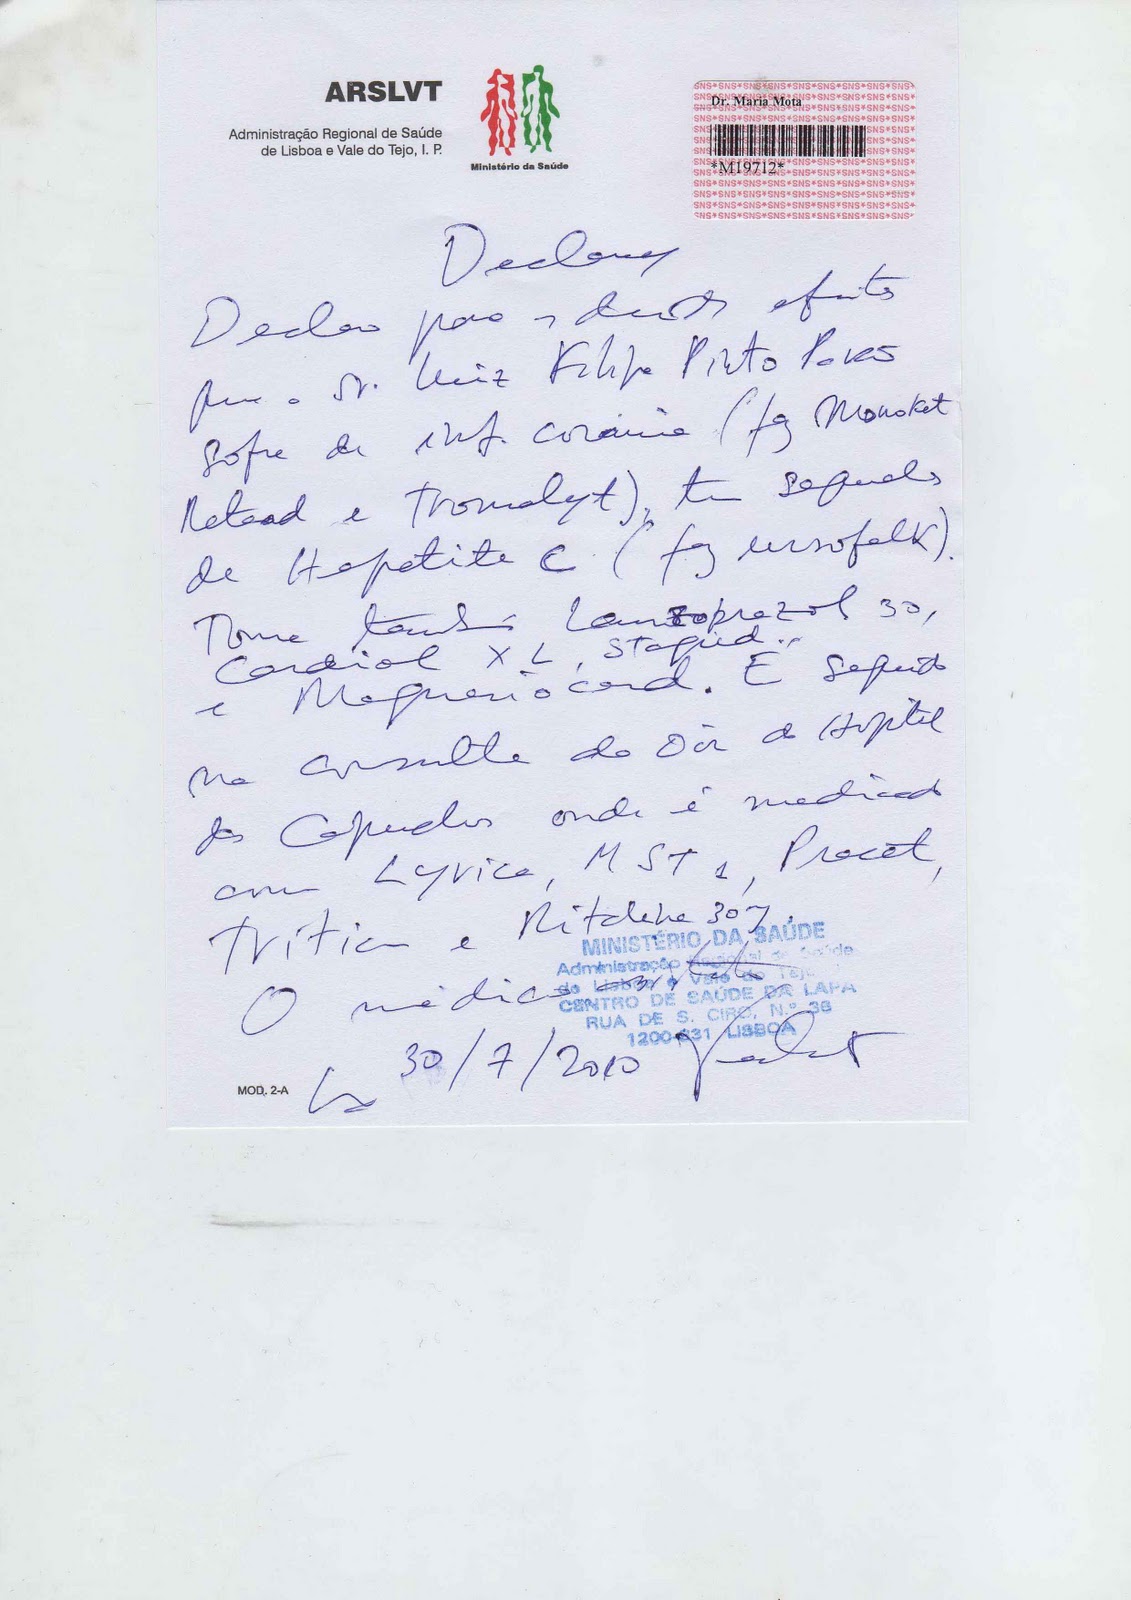 ARSLVT
Administração Regional de Saúde
de Lisboa e Vale do Tejo, I. P.
Ministério da Saúde
Dr. Maria Mota
*M19712*
Declaro para os devidos efeitos
que o Sr. Luiz Filipe Pinto
sofre de inf. coronária (fg Monoket
Retard e Tromalyt), tem sequelas
de Hepatite C (fg ursofalk).
Toma também Lansoprazol 30,
Cardiol XL, Stagid..
e Magnesiocard. É seguido
na consulta da Dor do Hospital
dos Capuchos onde é medicado
com Lyrica, MST 1, Procet,
Triticum e Ritalina 30
MINISTÉRIO DA SAÚDE
Administração Regional de Saúde
de Lisboa e Vale do Tejo
CENTRO DE SAÚDE DA LAPA
RUA DE S. CIRO, N.º 36
1200-831 LISBOA
O médico
30/7/2010
MOD. 2-A